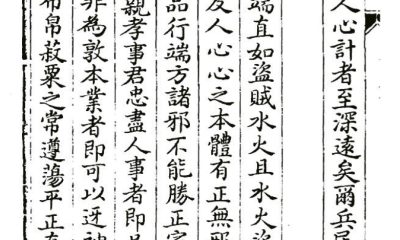 人心計者至深遠矣爾兵民
端直如盜賊水火且水火盜
及人心心之本體有正無邪
品行端方諸邪不能勝正家
親孝事君忠盡人事者即足
非為敦本業者即可以迓神
布帛菽粟之常遵蕩平正直